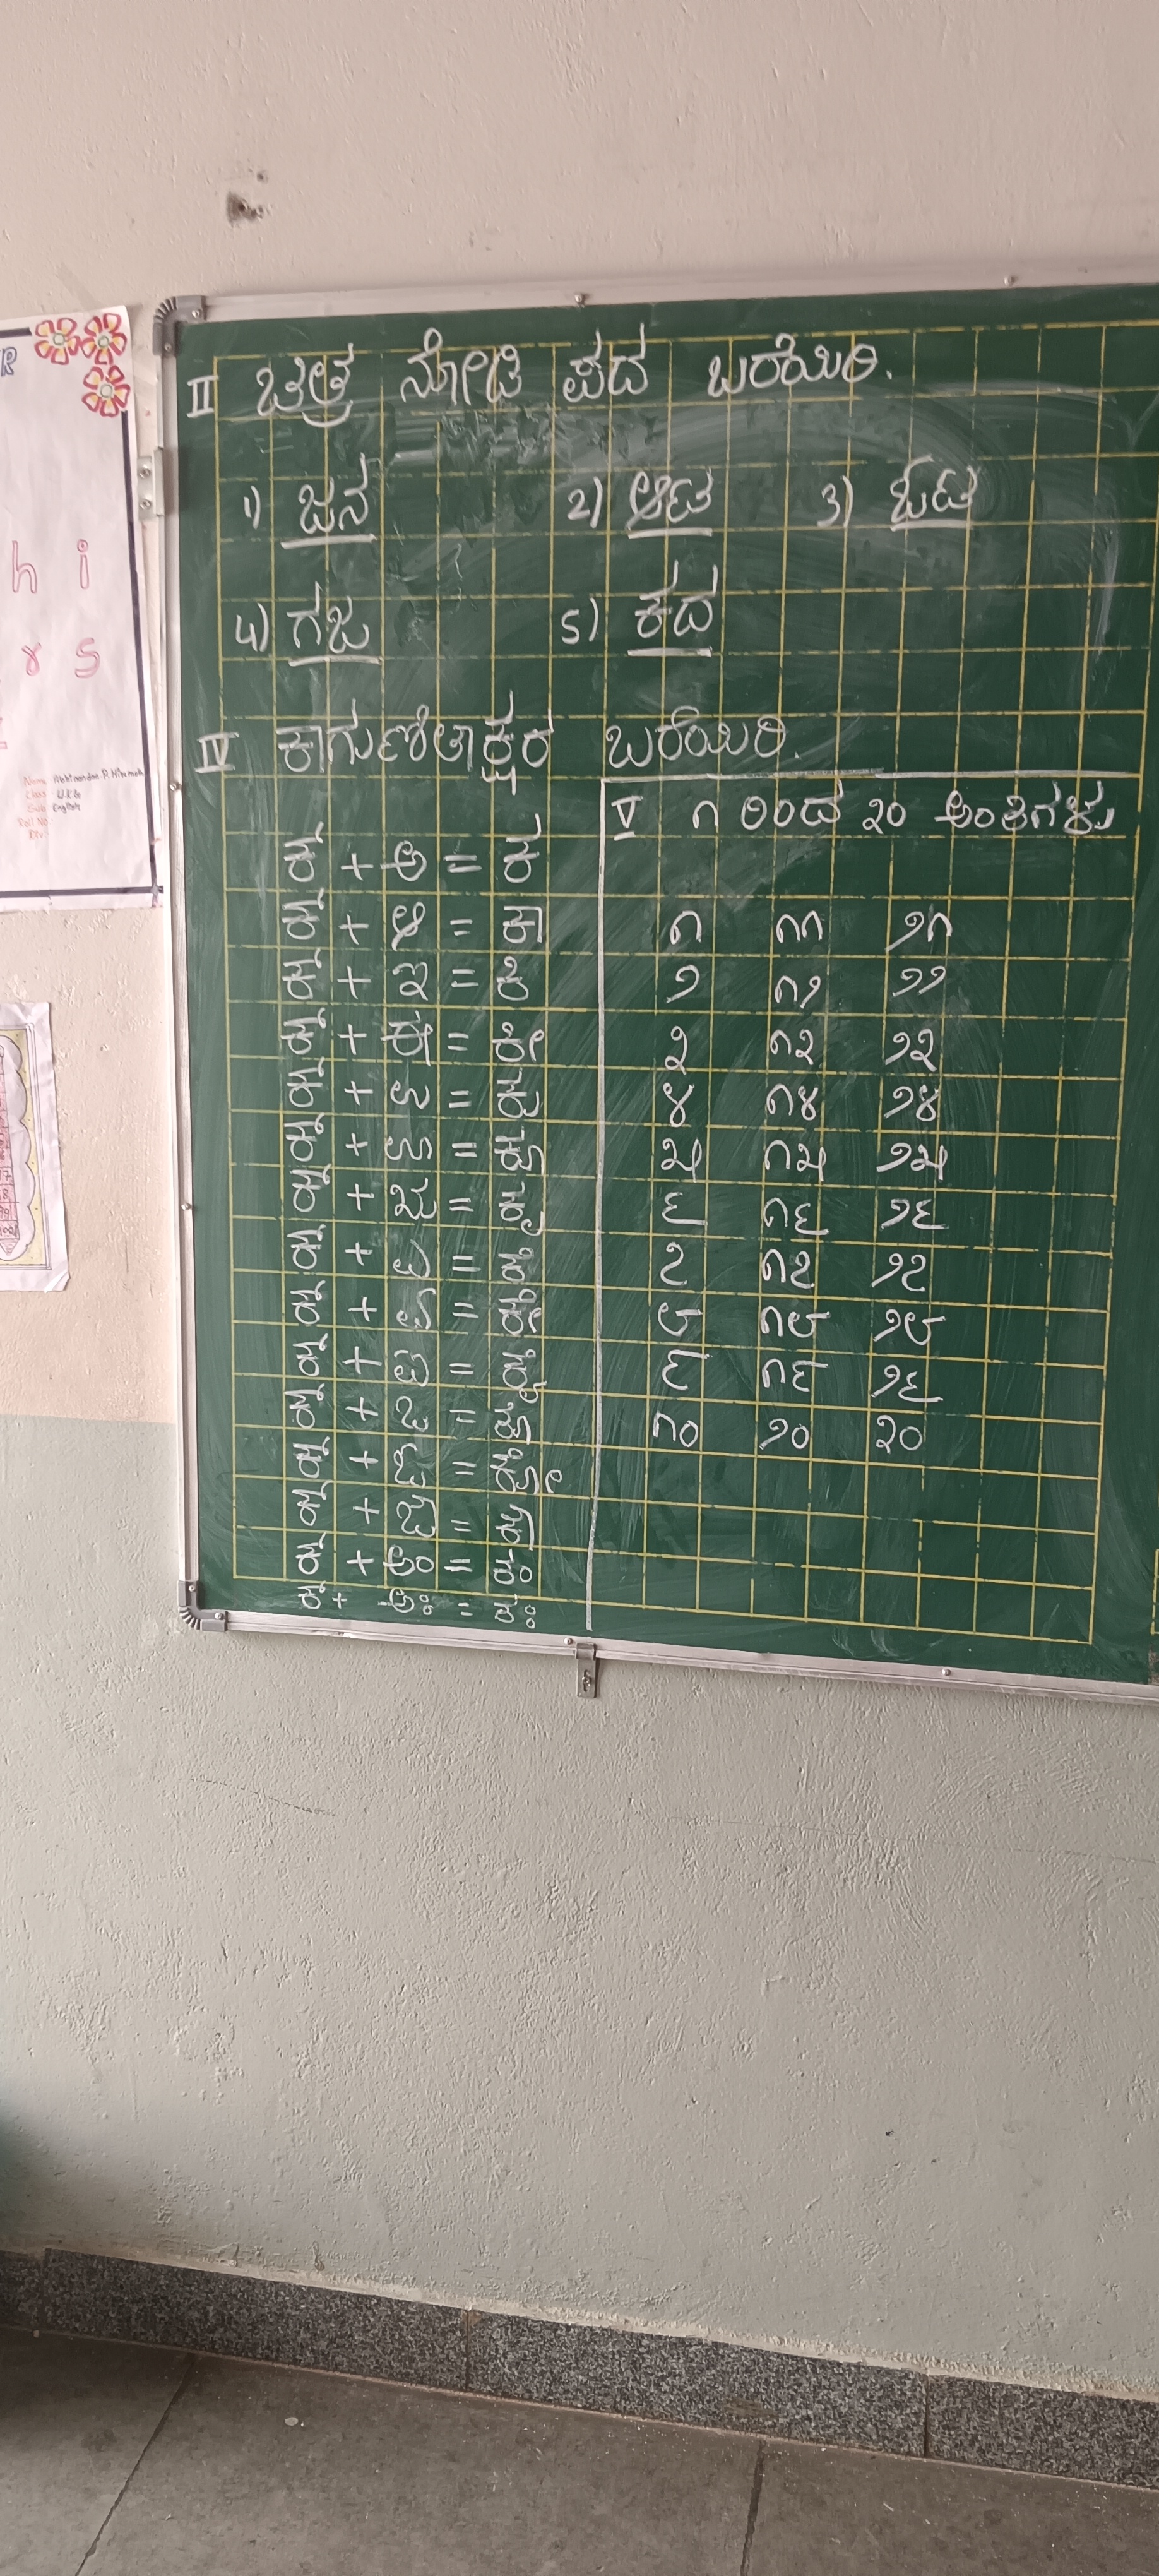 R
h i
r s
Name: Abhinandan.P.Hiremath
Class: U.K.G
Sub: English
Roll No:
II ಚಿತ್ರ ನೋಡಿ ಪದ ಬರೆಯಿರಿ.
1) ಜನ 2) ಆಟ 3) ಓಟ
4) ಗಜ 5) ಕದ
IV ಕಾಗುಣಿತಾಕ್ಷರ ಬರೆಯಿರಿ.
ಕ್ + ಅ = ಕ
ಕ್ + ಆ = ಕಾ
ಕ್ + ಇ = ಕಿ
ಕ್ + ಈ = ಕೀ
ಕ್ + ಉ = ಕು
ಕ್ + ಊ = ಕೂ
ಕ್ + ಋ = ಕೃ
ಕ್ + ಎ = ಕೆ
ಕ್ + ಏ = ಕೇ
ಕ್ + ಐ = ಕೈ
ಕ್ + ಒ = ಕೊ
ಕ್ + ಓ = ಕೋ
ಕ್ + ಔ = ಕೌ
ಕ್ + ಅಂ = ಕಂ
ಕ್ + ಅಃ = ಕಃ
V ೧ ರಿಂದ ೩೦ ಅಂಕಿಗಳು
೧ ೧೧ ೨೧
೨ ೧೨ ೨೨
೩ ೧೩ ೨೩
೪ ೧೪ ೨೪
೫ ೧೫ ೨೫
೬ ೧೬ ೨೬
೭ ೧೭ ೨೭
೮ ೧೮ ೨೮
೯ ೧೯ ೨೯
೧೦ ೨೦ ೩೦